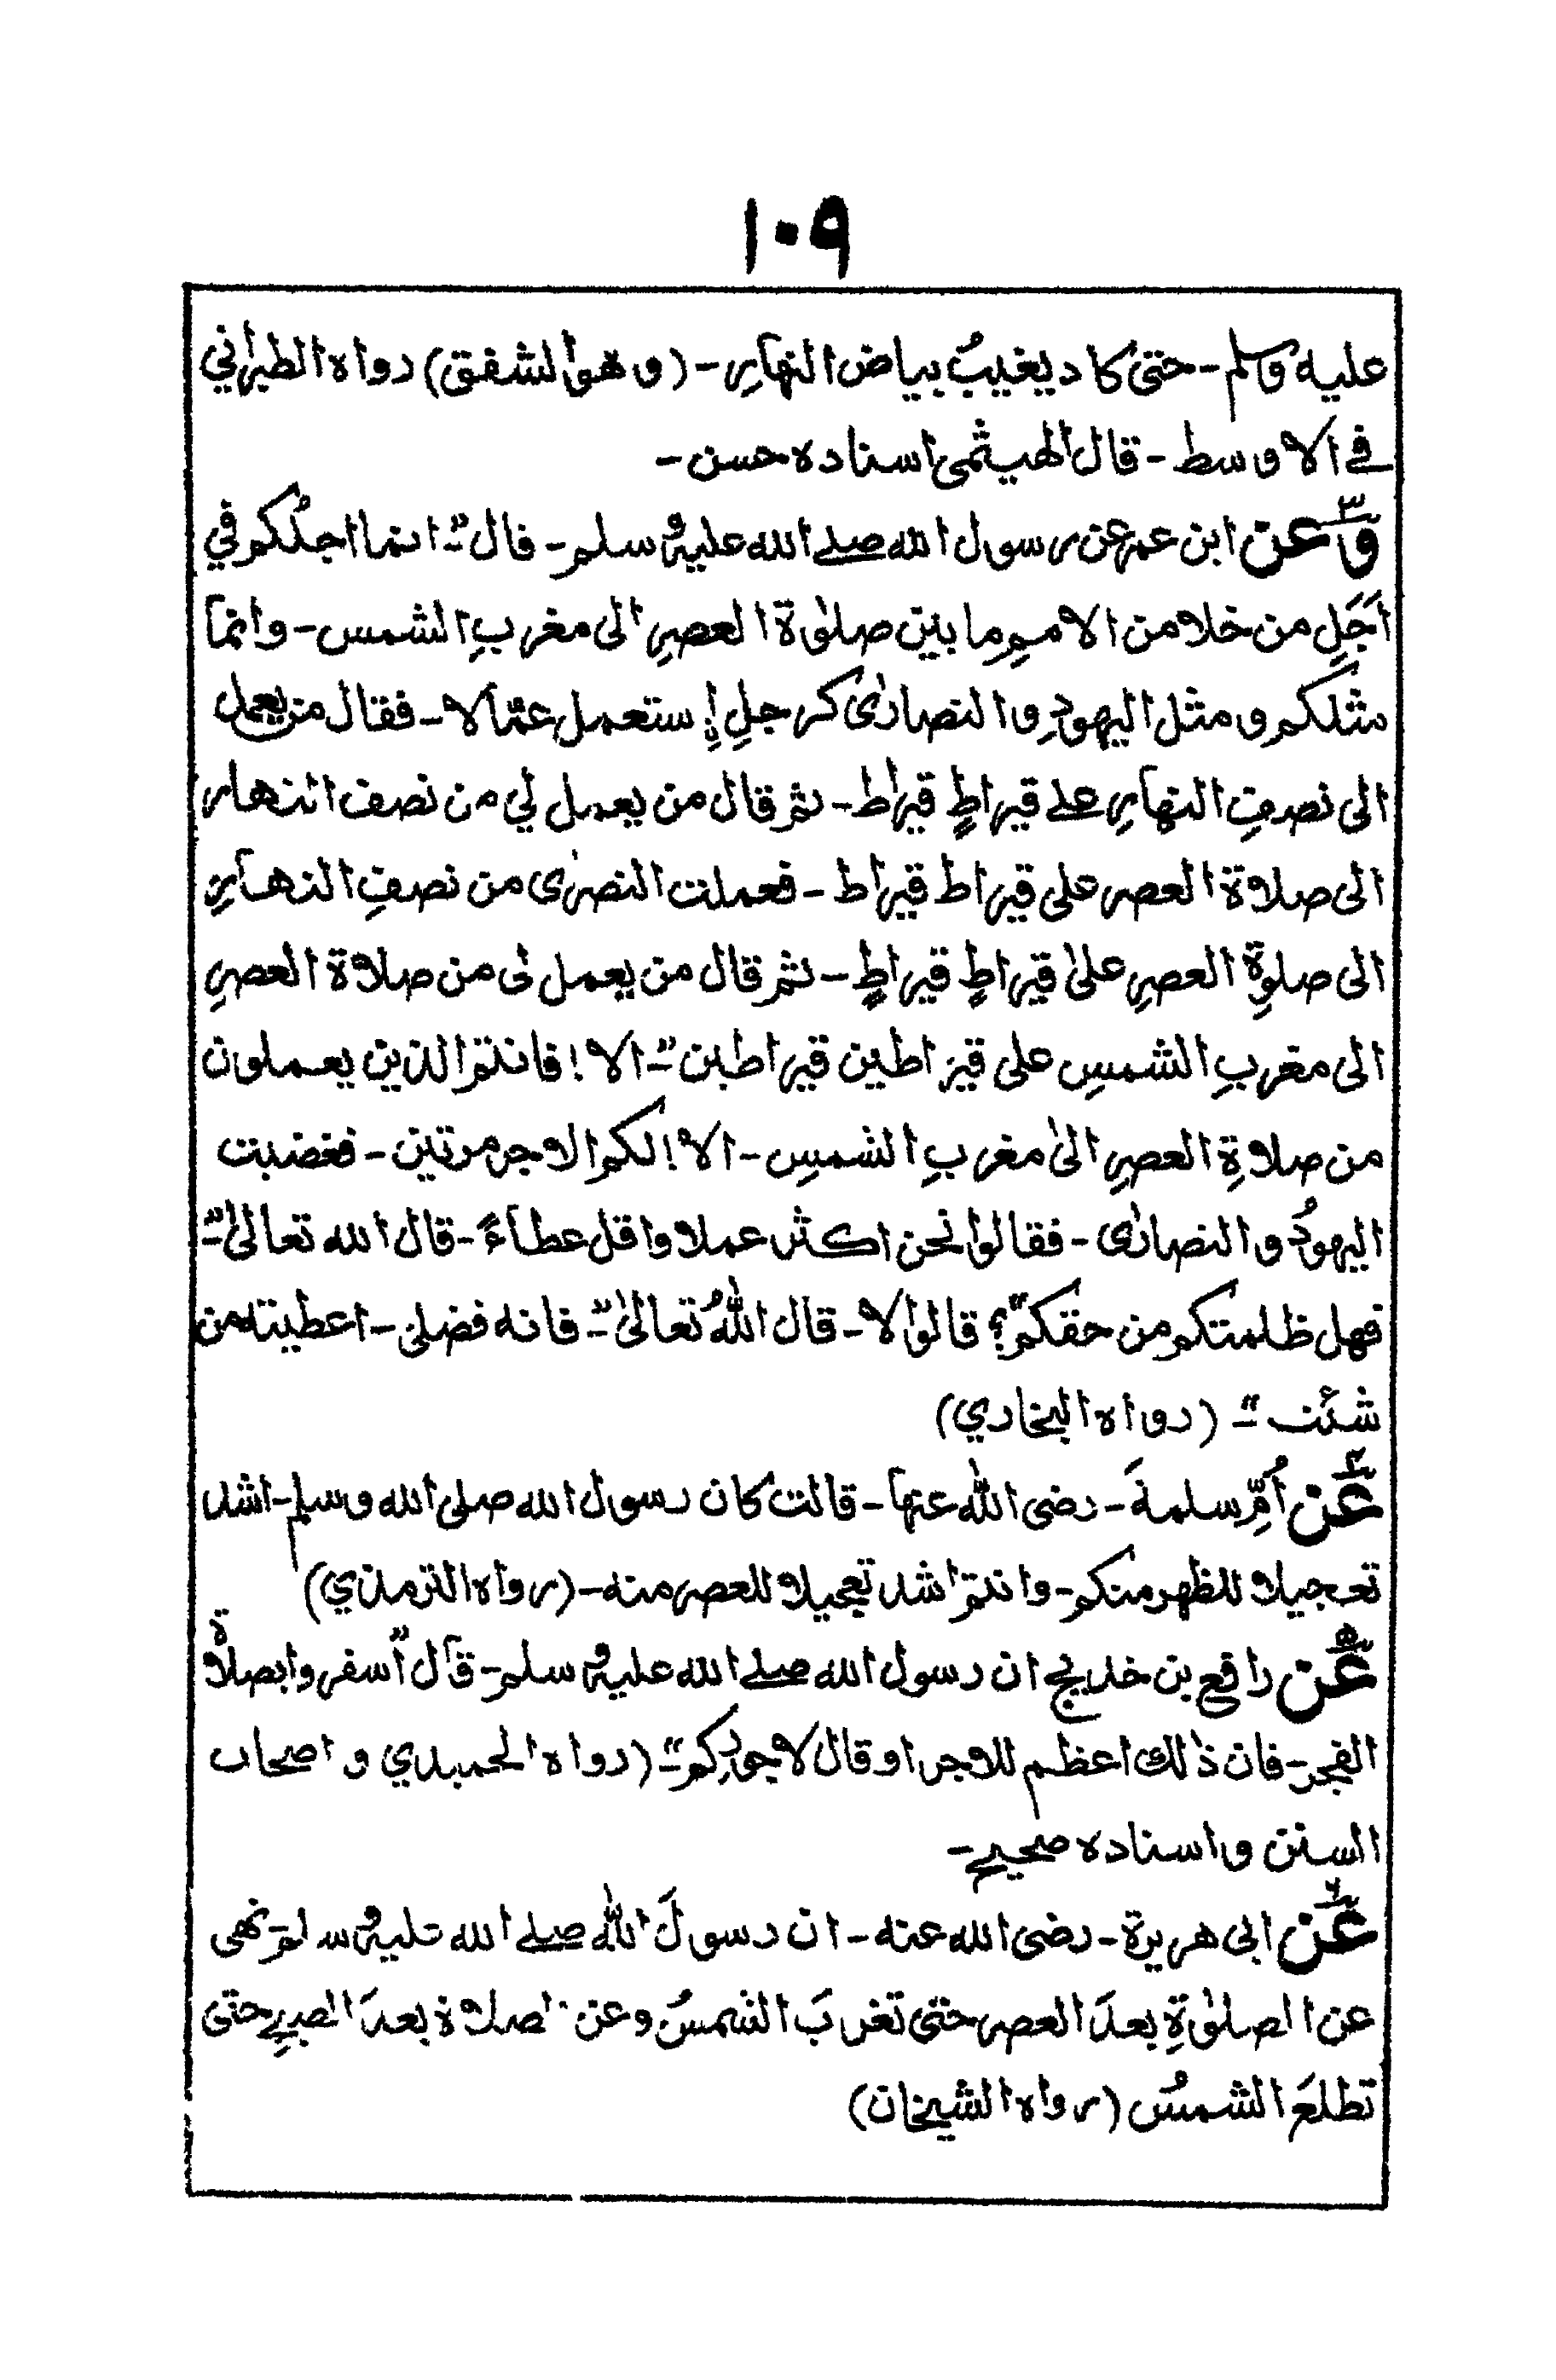 ١٠٩
عليه وسلم - حتى كاد يغيبُ بياض النهارِ - (وهو الشفق) رواه الطبراني
في الاوسط - قال الهيثمى اسناده حسن -
٣ وعن ابن عمر عن رسول الله صلى الله عليه وسلم - قال "- انما اجلُكم في
اَجَلِ من خلا من الاممِ ما بين صلوٰة العصرِ الى مغربِ الشمس - وانما
مثلكم ومثل اليهودِ والنصارىٰ كرجلٍ اِستعمل عمّالا - فقال من يعمل
الى نصفِ النهارِ على قيراطٍ قيراط - ثم قال من يعمل لي من نصف النهار
الى صلاة العصر على قيراط قيراط - فعملت النصرٰى من نصفِ النهارِ
الى صلوةِ العصرِ علىٰ قيراطٍ قيراطٍ - ثم قال من يعمل لى من صلاة العصرِ
الى مغربِ الشمسِ على قيراطين قيراطين "- الا! فانتم الذين يعملون
من صلاةِ العصرِ الىٰ مغربِ الشمسِ - الا! لكم الاجر مرتين - فغضبت
اليهودُ والنصارٰى - فقالوا نحن اكثر عملا واقل عطاءً - قال الله تعالىٰ "-
فهل ظلمتكم من حقكم"؟ قالوا لا - قال اللهُ تعالىٰ "- فانه فضلى - اعطيته من
شئت "- (رواه البخاري)
٤ عن اُمِّ سلمةَ - رضى الله عنها - قالت كان رسول الله صلى الله وسلم - اشد
تعجيلا للظهر منكم - وانتم اشد تعجيلا للعصر منه - (رواه الترمذي)
٥ عن رافع بن خديج ان رسول الله صلى الله عليه وسلم - قال "اسفروا بصلاة
الفجر - فان ذٰلك اعظم للاجر او قال لاجورِكم "- (رواه الحميدي واصحاب
السنن واسناده صحيح -
٦ عن ابى هريرة - رضى الله عنه - ان رسولَ الله صلى الله عليه وسلم - نهى
عن الصلوٰةِ بعدَ العصر حتى تغربَ الشمسُ وعن الصلاة بعدَ الصبحِ حتى
تطلعَ الشمسُ (رواه الشيخان)